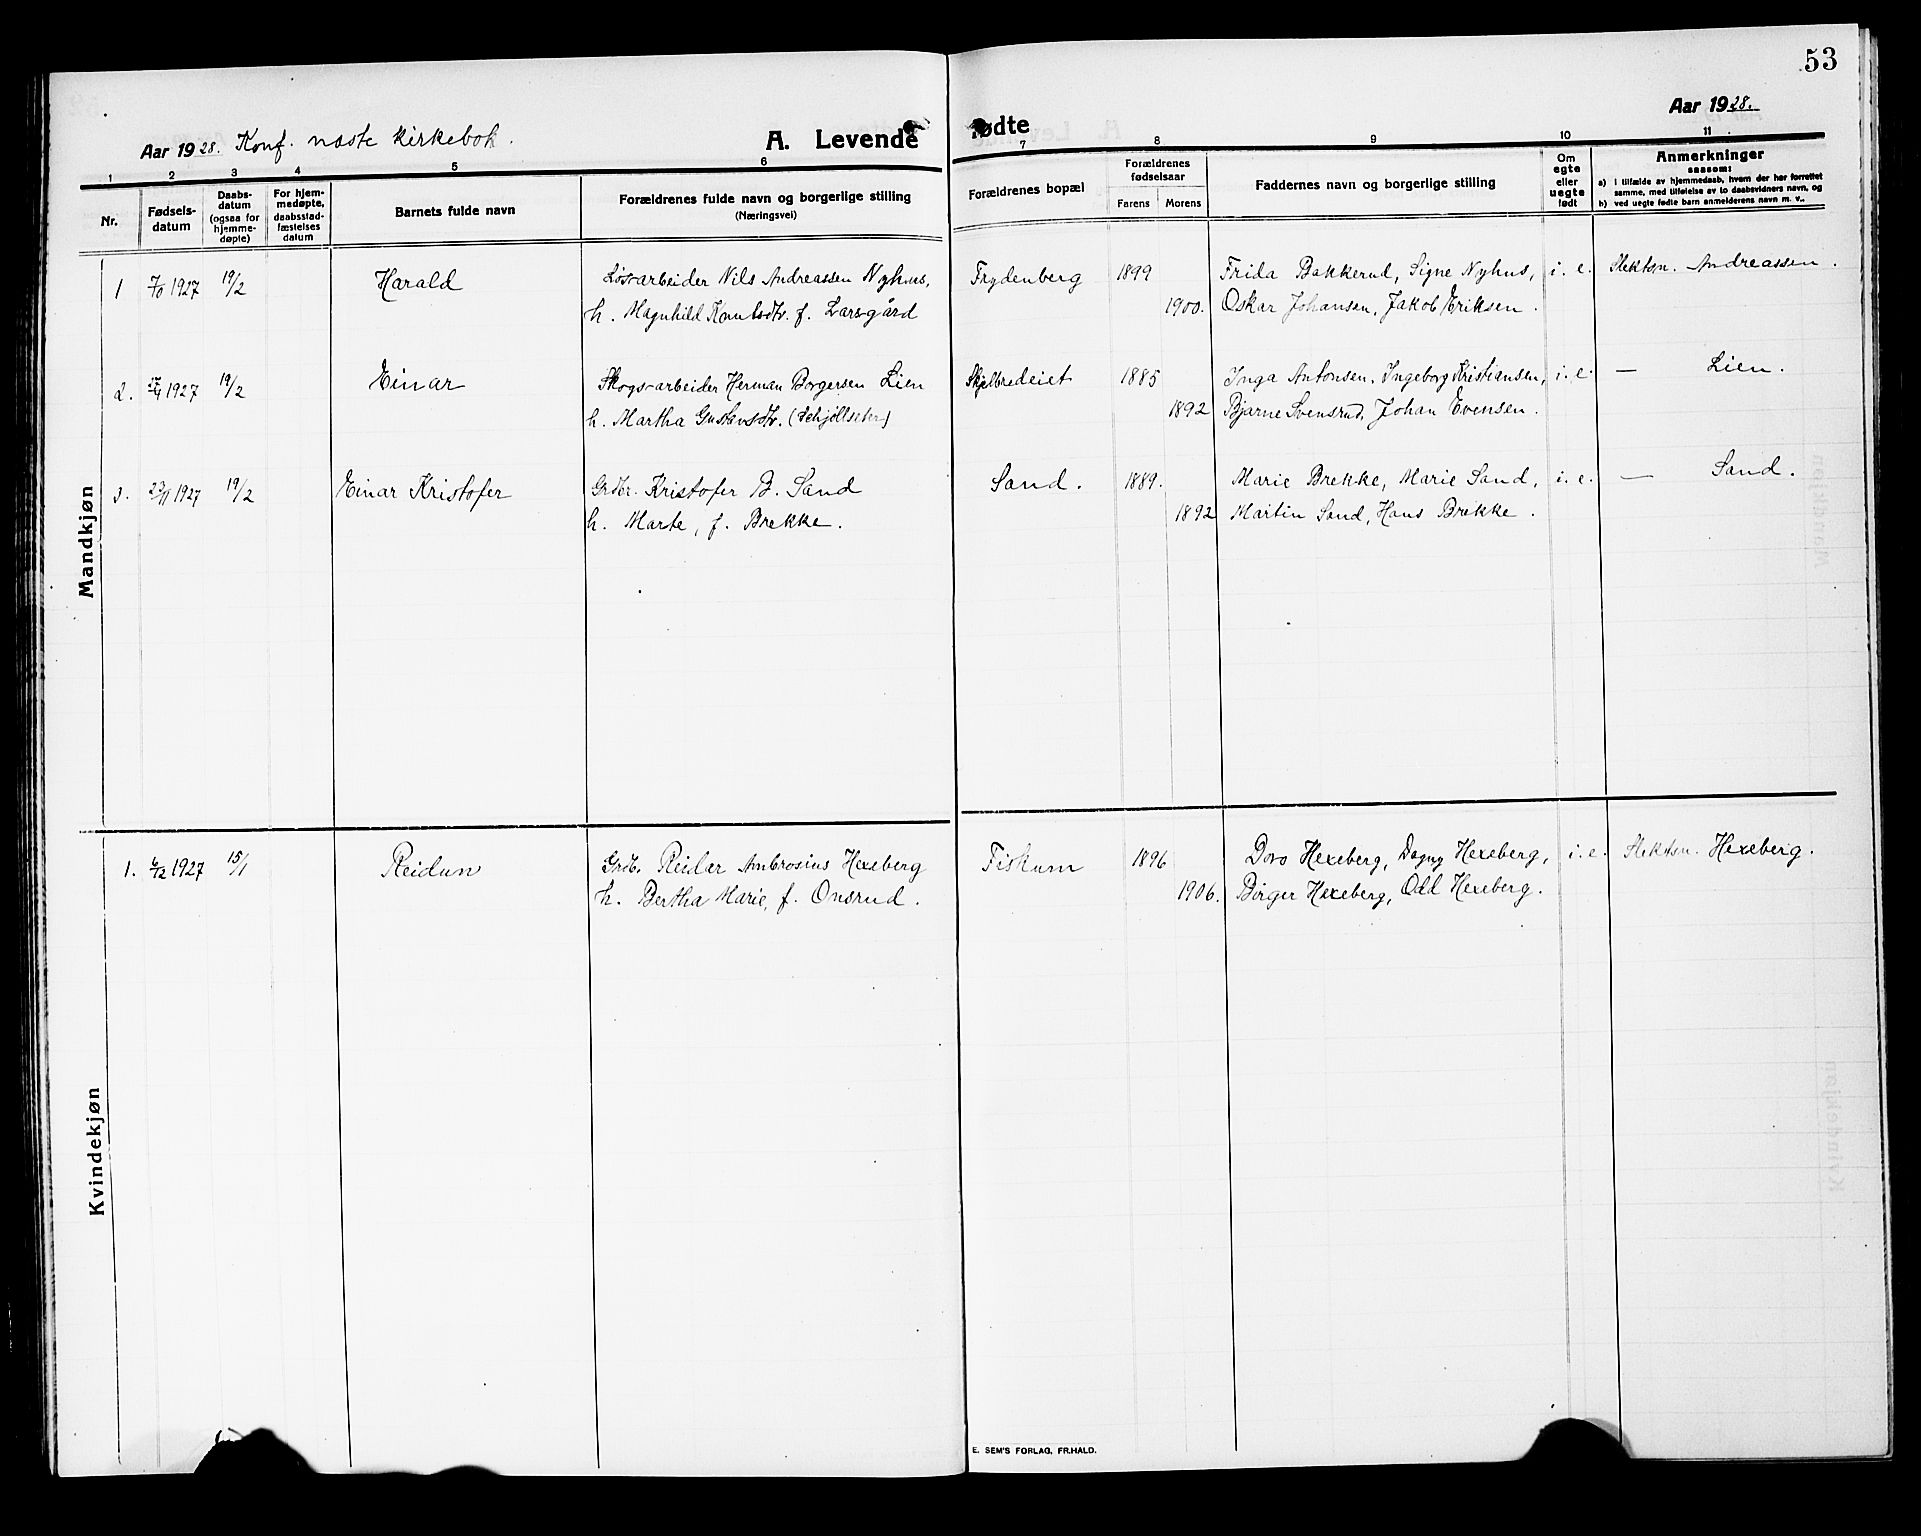 53
Aar 1928. Konf. næste kirkebok. A. Levende fødte Aar 1928.
1 2 3 4 5 6 7 8 9 10 11
Nr.
Fødsels-
datum
Daabs-
datum
(ogsaa for
hjemme-
døpte)
For hjem-
medøpte,
daabsstad-
fæstelses
datum
Barnets fulde navn
Forældrenes fulde navn og borgerlige stilling
(Næringsvei)
Forældrenes bopæl
Forældrenes
fødselsaar
Farens Morens
Faddernes navn og borgerlige stilling
Om
egte
eller
uegte
født
Anmerkninger
saasom:
a) i tilfælde av hjemmedaab, hvem der har forrettet
samme, med tilføielse av to daabsvidners navn, og
b) ved uegte fødte barn anmelderens navn m. v..
Mandkjøn
1 7/10 1927 19/2 Harald Løsarbeider Nils Andreassen Nyhus, Frydenberg 1899 Frida Bakkerud, Signe Nyhus, i. e. Slektsn. Andreassen.
h. Magnhild Knutsdtr. f. Larsgård 1900. Oskar Johansen, Jakob Eriksen.
2. 1927 19/2 Einar Skogsarbeider Herman Borgersen Lien Skjelbredeiet 1885 Inga Antonsen, Ingeborg Kristiansen, i. e. — Lien.
h. Martha Gustavsdtr. 1892 Bjarne Svensrud, Johan Evensen.
3. 23/11 1927 19/2 Einar Kristofer Grdbr. Kristofer B. Sand Sand. 1889. Marie Brekke, Marie Sand, i. e. — Sand.
h. Marte, f. Brekke. 1892 Martin Sand, Hans Brekke.
Kvindekjøn
1. 6/12 1927 15/1 Reidun Grdb. Reidar Ambrosius Hexeberg Fiskum 1896 Doro Hexeberg, Dagny Hexeberg, i. e. Slektsn. Hexeberg.
h. Bertha Marie, f. Onsrud. 1906. Birger Hexeberg, Odd Hexeberg.
E. SEM'S FORLAG, FR.HALD.